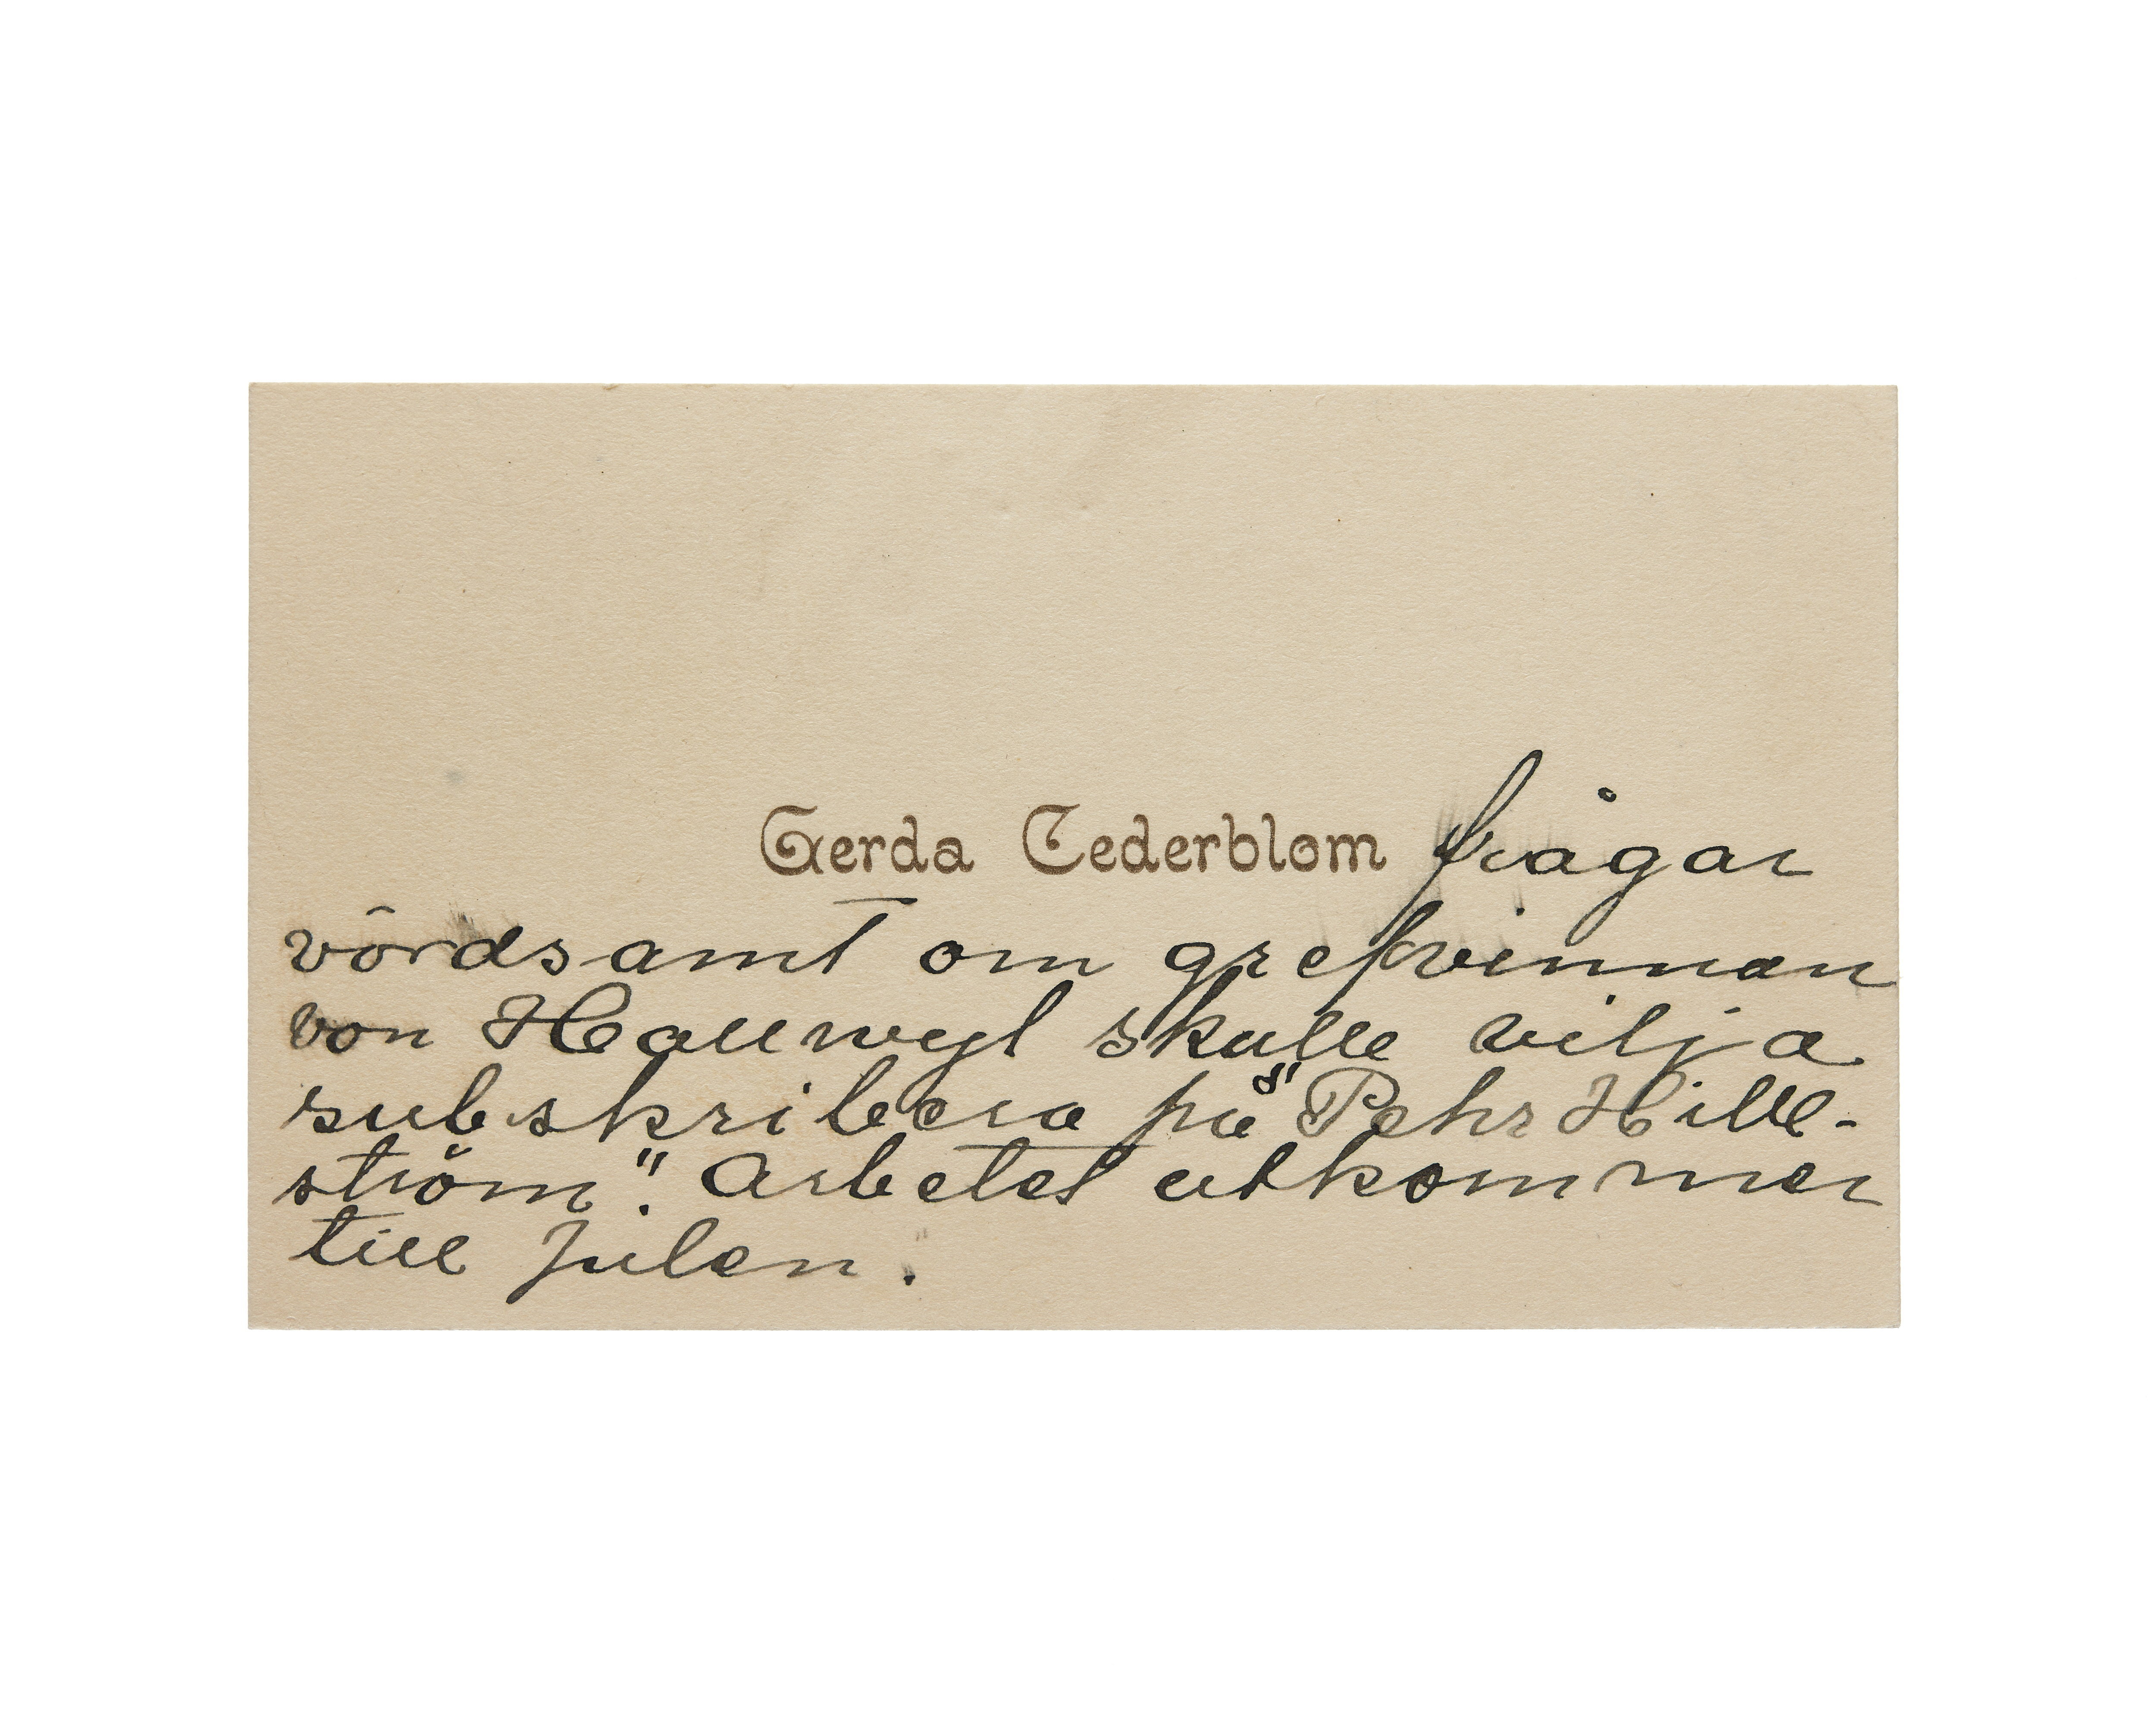 Gerda Cederblom frågar
vördsamt om grefvinnan
von Hallwyl skulle vilja
subskribera på "Pehr Hille-
ström". Arbetet utkommer
till Julen.